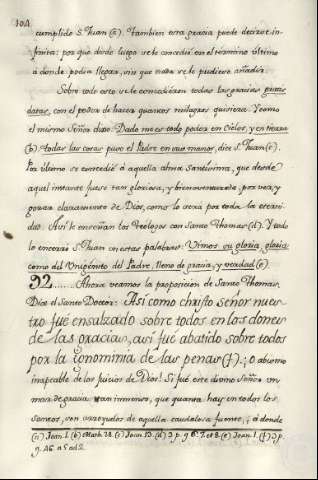 104
cumplido S. Juan (a). Tambien esta gracia puede decirse in-
finita: por que desde luego se le concedió en el termino ultimo
á donde podia llegar, sin que nada se le pudiese añadir.
Sobre todo esto se le concedieron todas las gracias gratis
datas, con el poder de hacer quantos milagros quisiera. Y como
el mismo Señor dixo: Dado me es todo poder en Cielos, y en tierra
(b). todas las cosas puso el Padre en sus manos, dice S. Juan (c).
Por ultimo se concedió á aquella alma Santisima, que desde
aquel instante fuese tan gloriosa, y bienaventurada, por ver, y
gozar claramente de Dios, como lo será por toda la eterni-
dad. Asi lo enseñan los Teologos con Santo Thomas (d). Y todo
lo encerró S. Juan en estas palabras: Vimos su gloria, gloria
como del Unigenito del Padre, lleno de gracia, y verdad (e).
92...... Ahora veamos la proposicion de Santo Thomas.
Dice el Santo Doctor: Asi como christo señor nues-
tro fué ensalzado sobre todos en los dones
de las gracias, asi fué abatido sobre todos
por la ignominia de las penas (f). ¡O abismo
inapeable de los juicios de Dios! Si fué este divino Señor un
mar de gracia tan inmenso, que quanta hay en todos los
Santos, son arroyuelos de aquella caudalosa fuente; ¿á donde
(a) Joan. 1. (b) Math. 28. (c) Joan. 13. (d) 3. p. q. 6. 7. et 8. (e) Joan. 1. (f) 3. p.
q. 46. a 5. ad 2.